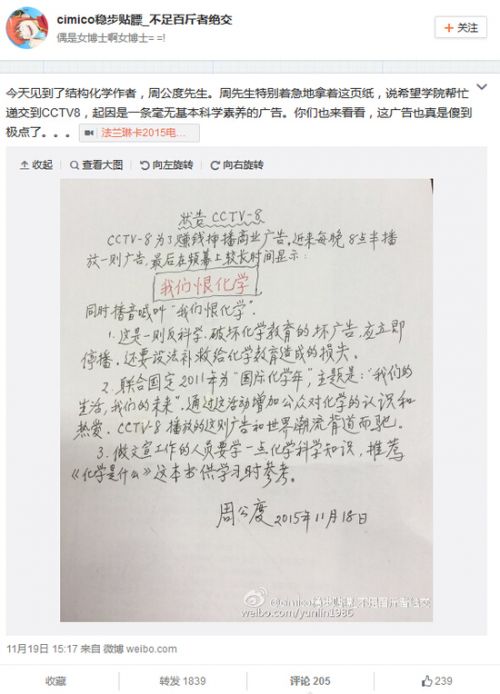 cimico稳步贴膘_不足百斤者绝交
偶是女博士啊女博士= =!
+ 关注
今天见到了结构化学作者,周公度先生。周先生特别着急地拿着这页纸,说希望学院帮忙
递交到CCTV8,起因是一条毫无基本科学素养的广告。你们也来看看,这广告也真是傻到
极点了。。。 法兰琳卡2015电...
收起 查看大图 向左旋转 向右旋转
状告 CCTV-8
CCTV-8为了赚钱插播商业广告,近来每晚8点半播
放一则广告,最后在频幕上较长时间显示:
我们恨化学
同时播音喊叫“我们恨化学”.
1. 这是一则反科学、破坏化学教育的坏广告,应立即
停播。还要设法补救给化学教育造成的损失。
2. 联合国定2011年为“国际化学年”,主题是:“我们的
生活,我们的未来”。通过这活动增加公众对化学的认识和
热爱。CCTV-8播放的这则广告和世界潮流背道而驰。
3. 做文宣工作的人员要学一点化学科学知识,推荐
《化学是什么》这本书供学习时参考。
周公度 2015年11月18日
@cimico稳步贴膘_不足百斤者绝交
weibo.com/yunlin1986
11月19日 15:17 来自 微博 weibo.com
收藏 转发 1839 评论 205 239